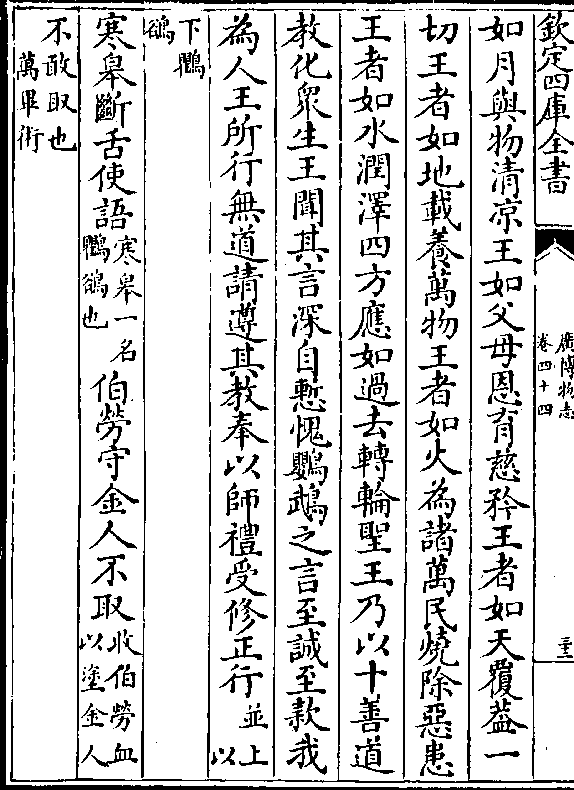 欽定四庫全書
廣博物志
卷四十四
三十二
如月與物清凉王如父母恩育慈矜王者如天覆葢一
切王者如地載養萬物王者如火為諸萬民燒除惡患
王者如水潤澤四方應如過去轉輪聖王乃以十善道
教化衆生王聞其言深自慙愧鸚鵡之言至誠至款我
為人王所行無道請遵其教奉以師禮受修正行並上
以
下鸜
鵒
寒皋斷舌使語寒皋一名
鸜鵒也伯勞守金人不取收伯勞血
以塗金人
不敢取也
萬畢術